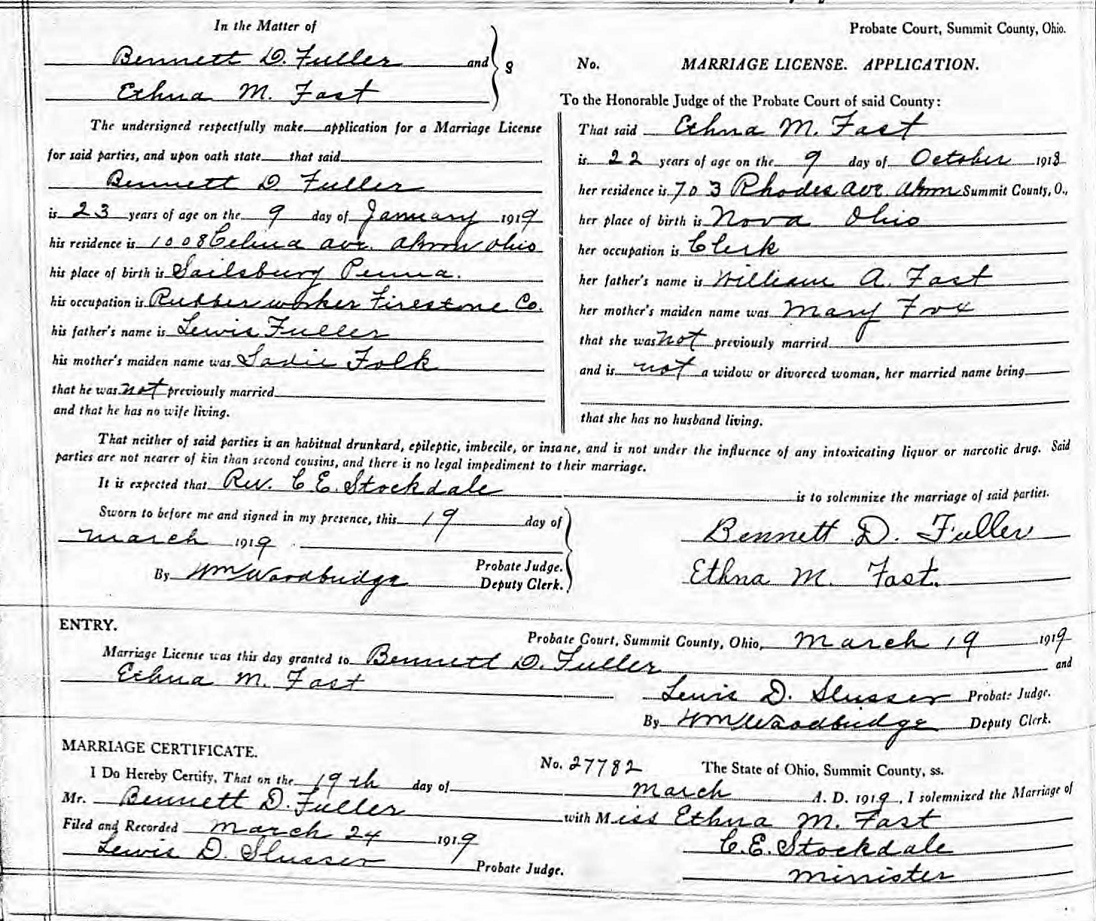 In the Matter of
Bennett D. Fuller and
Ethna M. Fast
The undersigned respectfully make application for a Marriage License
for said parties, and upon oath state that said
Bennett D Fuller
is 23 years of age on the 9 day of January 1919
his residence is 1008 Celina ave. Akron Ohio
his place of birth is Sailsbury Penna.
his occupation is Rubber worker Firestone Co.
his father's name is Lewis Fuller
his mother's maiden name was Sadie Folk
that he was not previously married
and that he has no wife living.
Probate Court, Summit County, Ohio.
No. MARRIAGE LICENSE. APPLICATION.
To the Honorable Judge of the Probate Court of said County:
That said Ethna M. Fast
is 22 years of age on the 9 day of October 1918
her residence is 703 Rhodes ave. Akron Summit County, O.,
her place of birth is Nova Ohio
her occupation is Clerk
her father's name is William A. Fast
her mother's maiden name was Mary Fox
that she was not previously married
and is not a widow or divorced woman, her married name being
that she has no husband living.
That neither of said parties is an habitual drunkard, epileptic, imbecile, or insane, and is not under the influence of any intoxicating liquor or narcotic drug. Said
parties are not nearer of kin than second cousins, and there is no legal impediment to their marriage.
It is expected that Rev. C E. Stockdale is to solemnize the marriage of said parties.
Sworn to before me and signed in my presence, this 19 day of
March 1919.
Probate Judge.
By Wm Woodbridge Deputy Clerk.
Bennett D. Fuller
Ethna M. Fast.
ENTRY.
Probate Court, Summit County, Ohio, March 19 1919
Marriage License was this day granted to Bennett D. Fuller and
Ethna M. Fast
Lewis D. Slusser Probate Judge.
By Wm Woodbridge Deputy Clerk.
MARRIAGE CERTIFICATE.
No. 27782 The State of Ohio, Summit County, ss.
I Do Hereby Certify, That on the 19th day of March A. D. 1919, I solemnized the Marriage of
Mr. Bennett D. Fuller with Miss Ethna M. Fast
Filed and Recorded March 24 1919
C.E. Stockdale
Lewis D. Slusser Probate Judge.
Minister